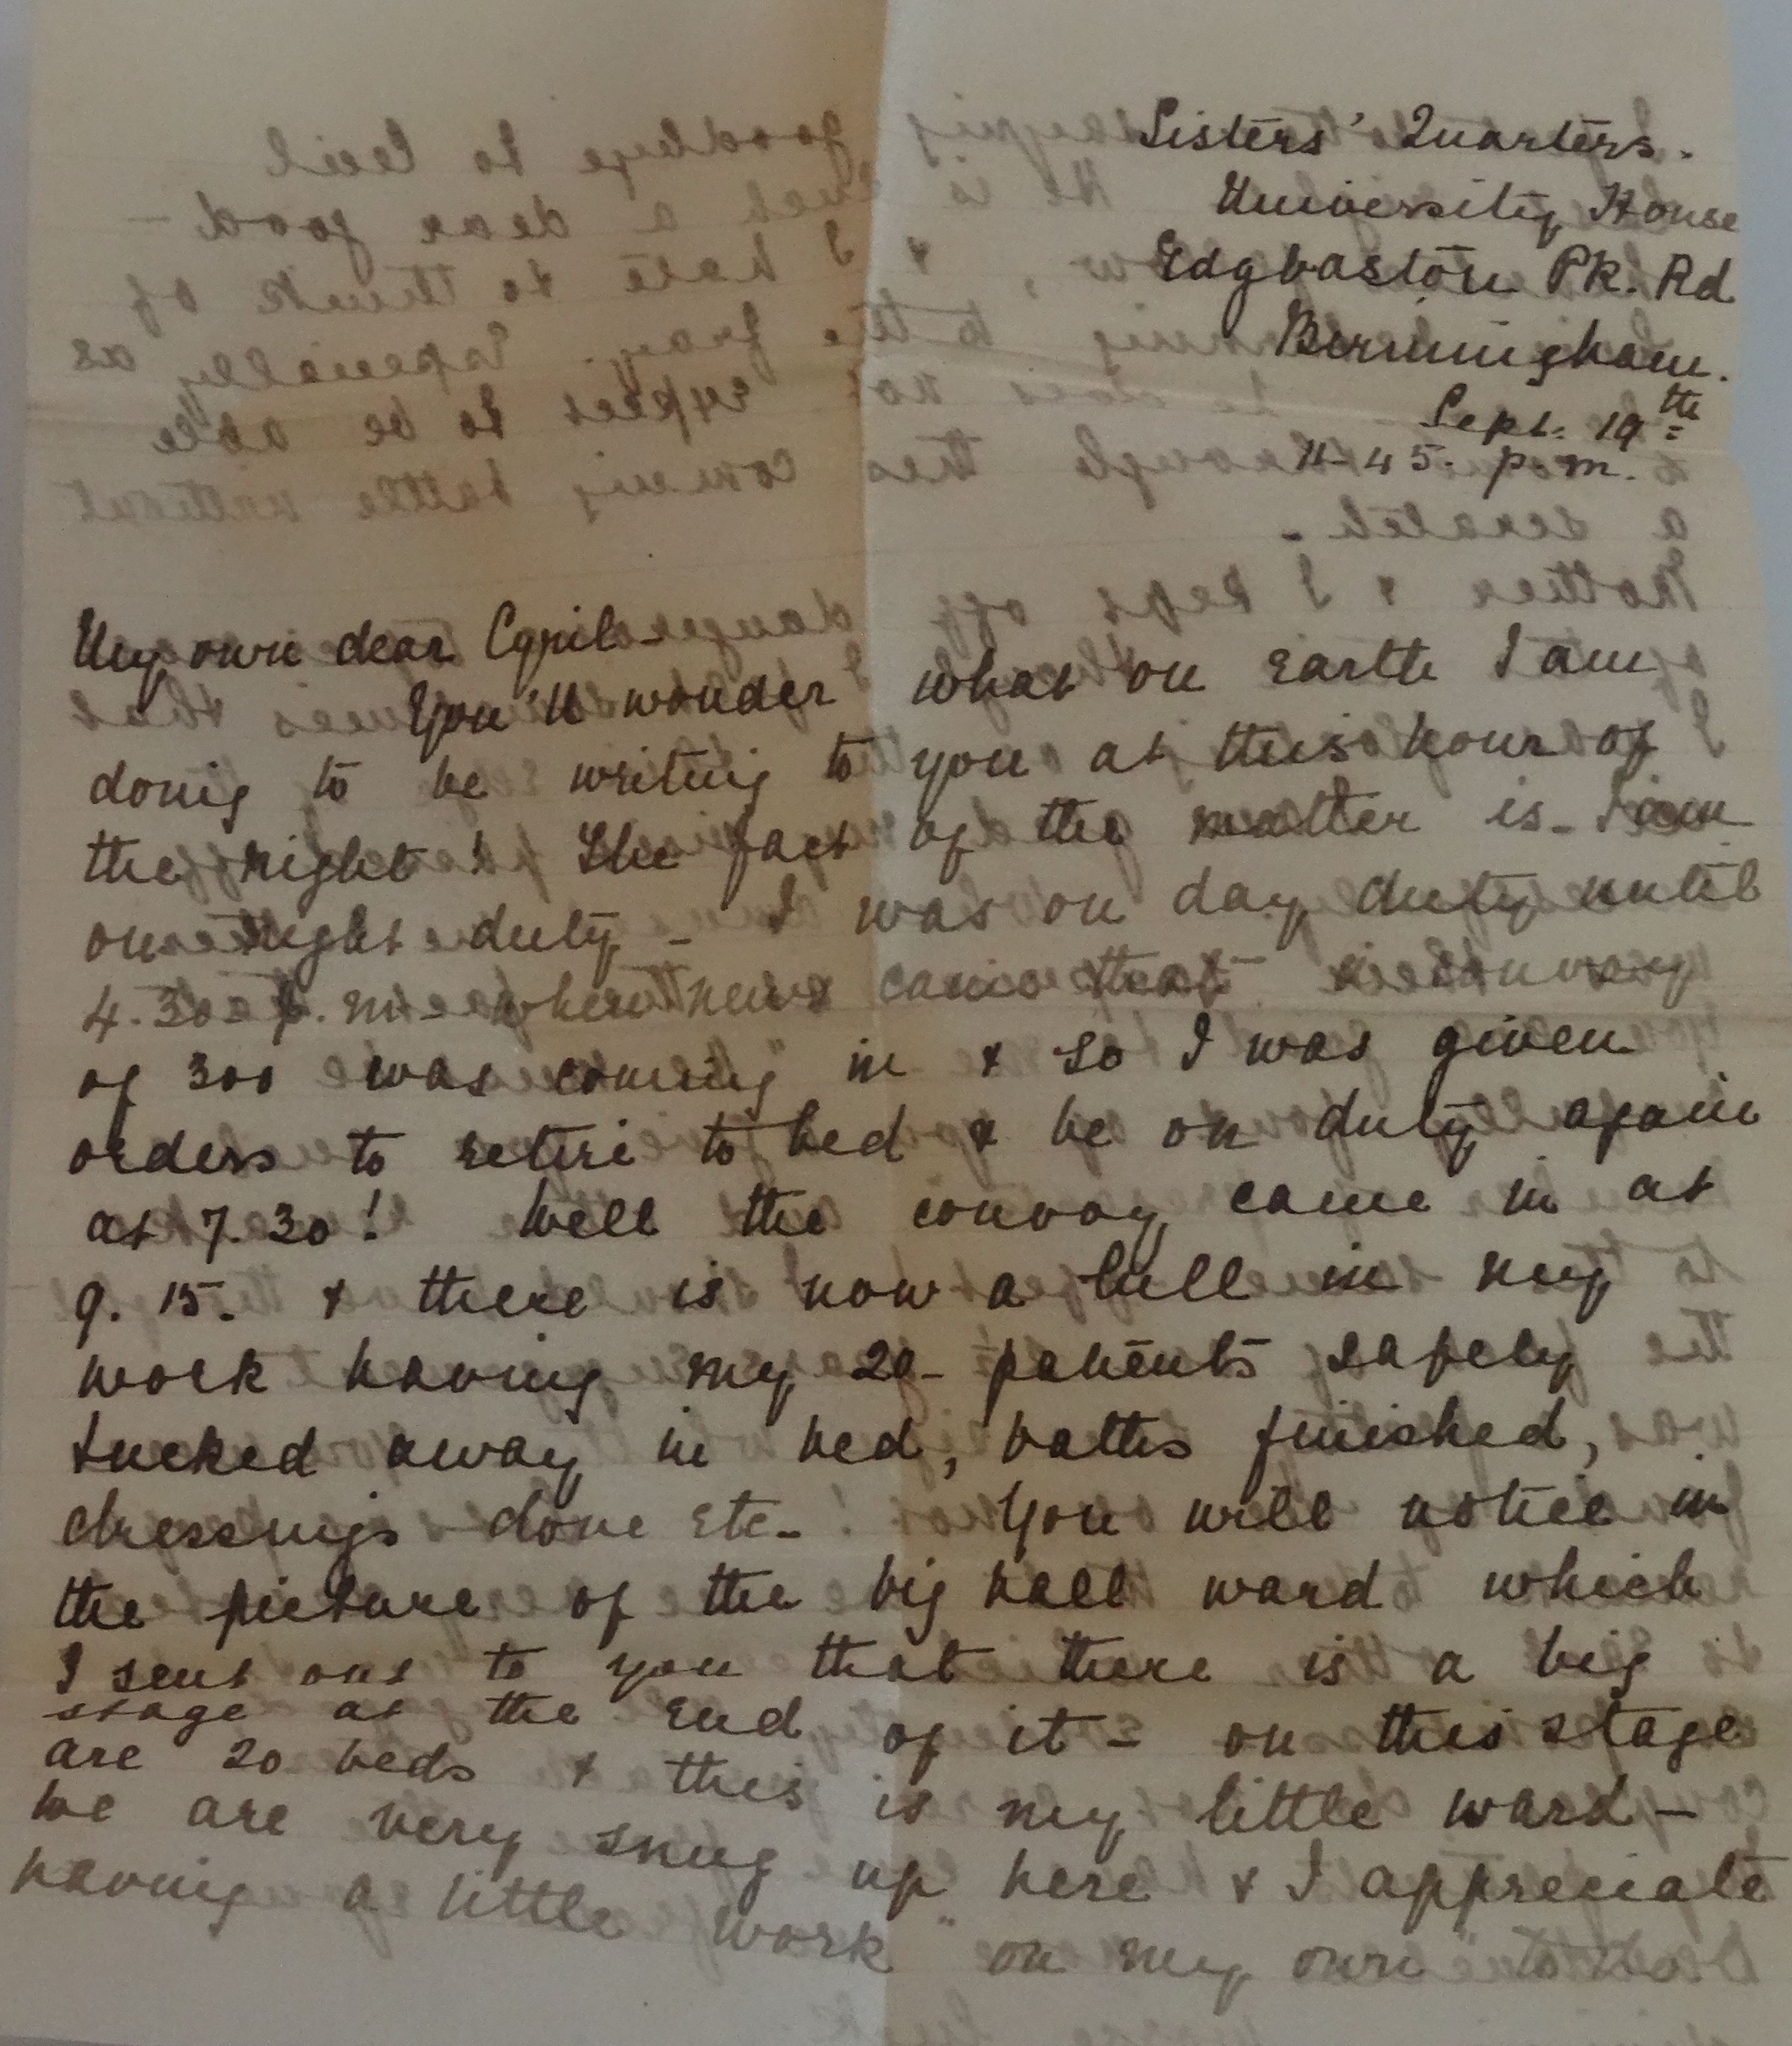 Sisters' Quarters.
University House
Edgbaston Pk. Rd
Birmingham.
Sept. 19th
11-45. p.m.
My own dear Cyril-
You'll wonder what on Earth I am
doing to be writing to you at this hour of
the night! The fact of the matter is- I am
on night duty - I was on day duty until
4.30 p.m- when news came that a convoy
of 300 was coming in & so I was given
orders to retire to bed & be on duty again
at 7.30! Well the convoy came in at
9.15. & there is now a lull in my
work having my 20- patients safely
tucked away in bed, baths finished,
dressings done Etc- You will notice in
the picture of the big hall ward which
I sent out to you that there is a big
stage at the End of it - on this stage
are 20 beds & this is my little ward-
We are very snug up here & I appreciate
having a little work "on my own" to do